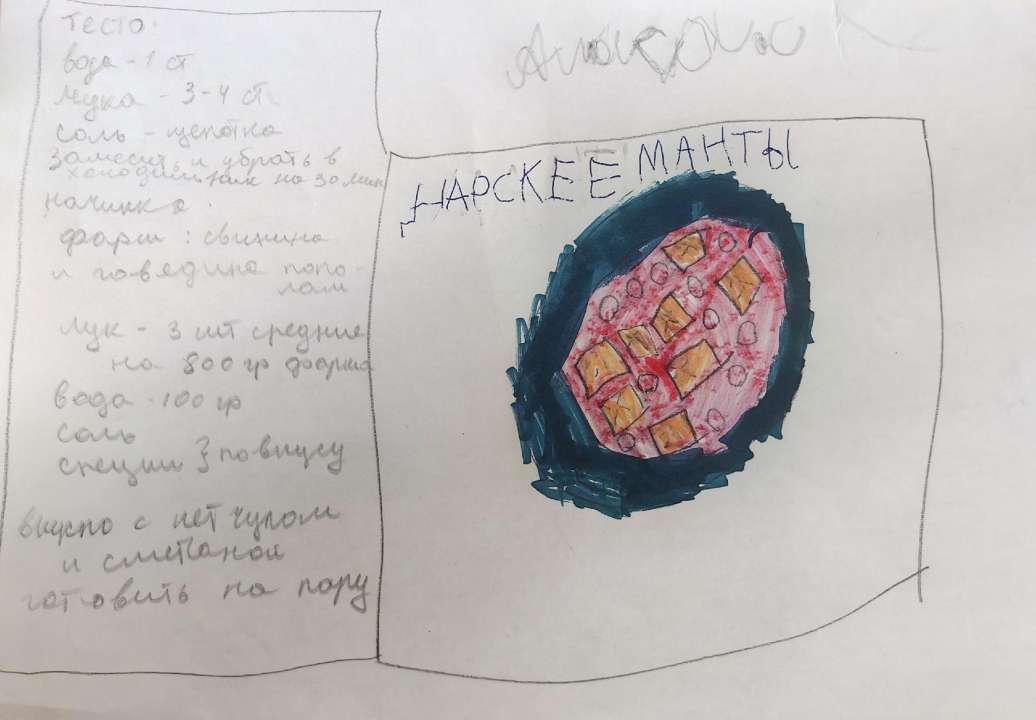 Тесто:
вода - 1 ст
мука - 3-4 ст.
соль - щепотка
замесить и убрать в
холодильник на 30 мин
начинка:
фарш: свинина
и говядина попо-
лам
лук - 3 шт средние
на 800 гр фарша
вода - 100 гр
соль
специи } по вкусу
вкусно с кетчупом
и сметаной
готовить на пару
ЦАРСКЕЕ МАНТЫ